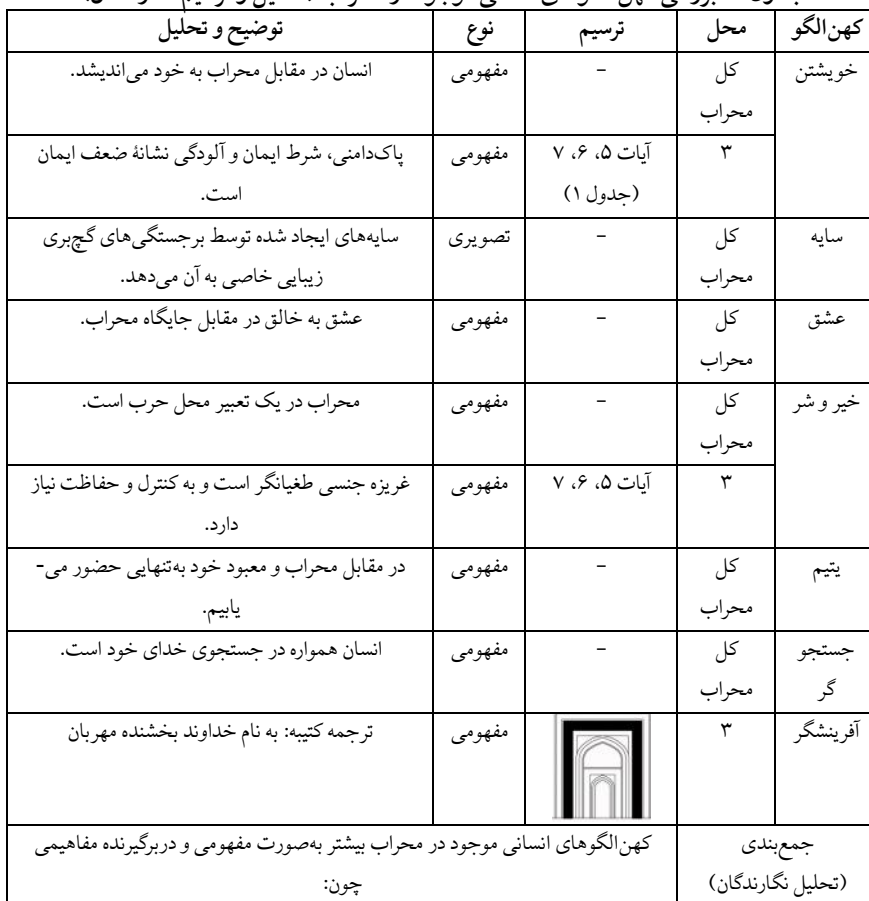 کهن‌الگو محل ترسیم نوع توضیح و تحلیل
خویشتن کل محراب – مفهومی انسان در مقابل محراب به خود می‌اندیشد.
۳ آیات ۵، ۶، ۷ (جدول ۱) مفهومی پاک‌دامنی، شرط ایمان و آلودگی نشانهٔ ضعف ایمان
است.
سایه کل محراب – تصویری سایه‌های ایجاد شده توسط برجستگی‌های گچ‌بری
زیبایی خاصی به آن می‌دهد.
عشق کل محراب – مفهومی عشق به خالق در مقابل جایگاه محراب.
خیر و شر کل محراب – مفهومی محراب در یک تعبیر محل حرب است.
۳ آیات ۵، ۶، ۷ مفهومی غریزه جنسی طغیانگر است و به کنترل و حفاظت نیاز
دارد.
یتیم کل محراب – مفهومی در مقابل محراب و معبود خود به‌تنهایی حضور می-
یابیم.
جستجو گر کل محراب – مفهومی انسان همواره در جستجوی خدای خود است.
آفرینشگر ۳ مفهومی ترجمه کتیبه: به نام خداوند بخشنده مهربان
جمع‌بندی کهن‌الگوهای انسانی موجود در محراب بیشتر به‌صورت مفهومی و دربرگیرنده مفاهیمی
(تحلیل نگارندگان) چون: